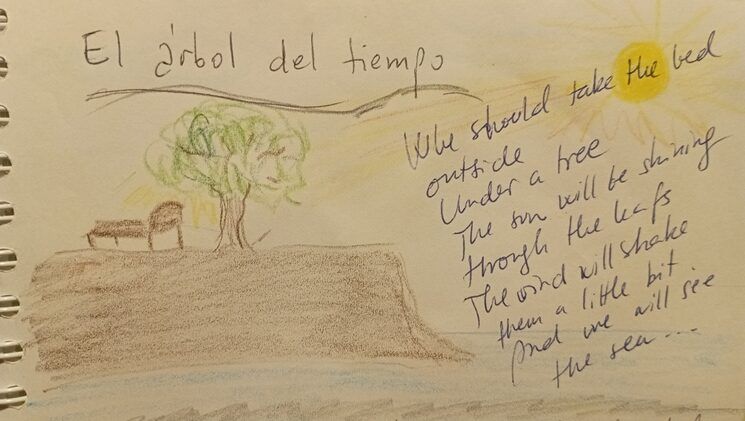 El árbol del tiempo
Whe should take the bed
outside
Under a tree
The sun will be shining
through the leafs
The wind will shake
them a little bit
And we will see
the sea ...